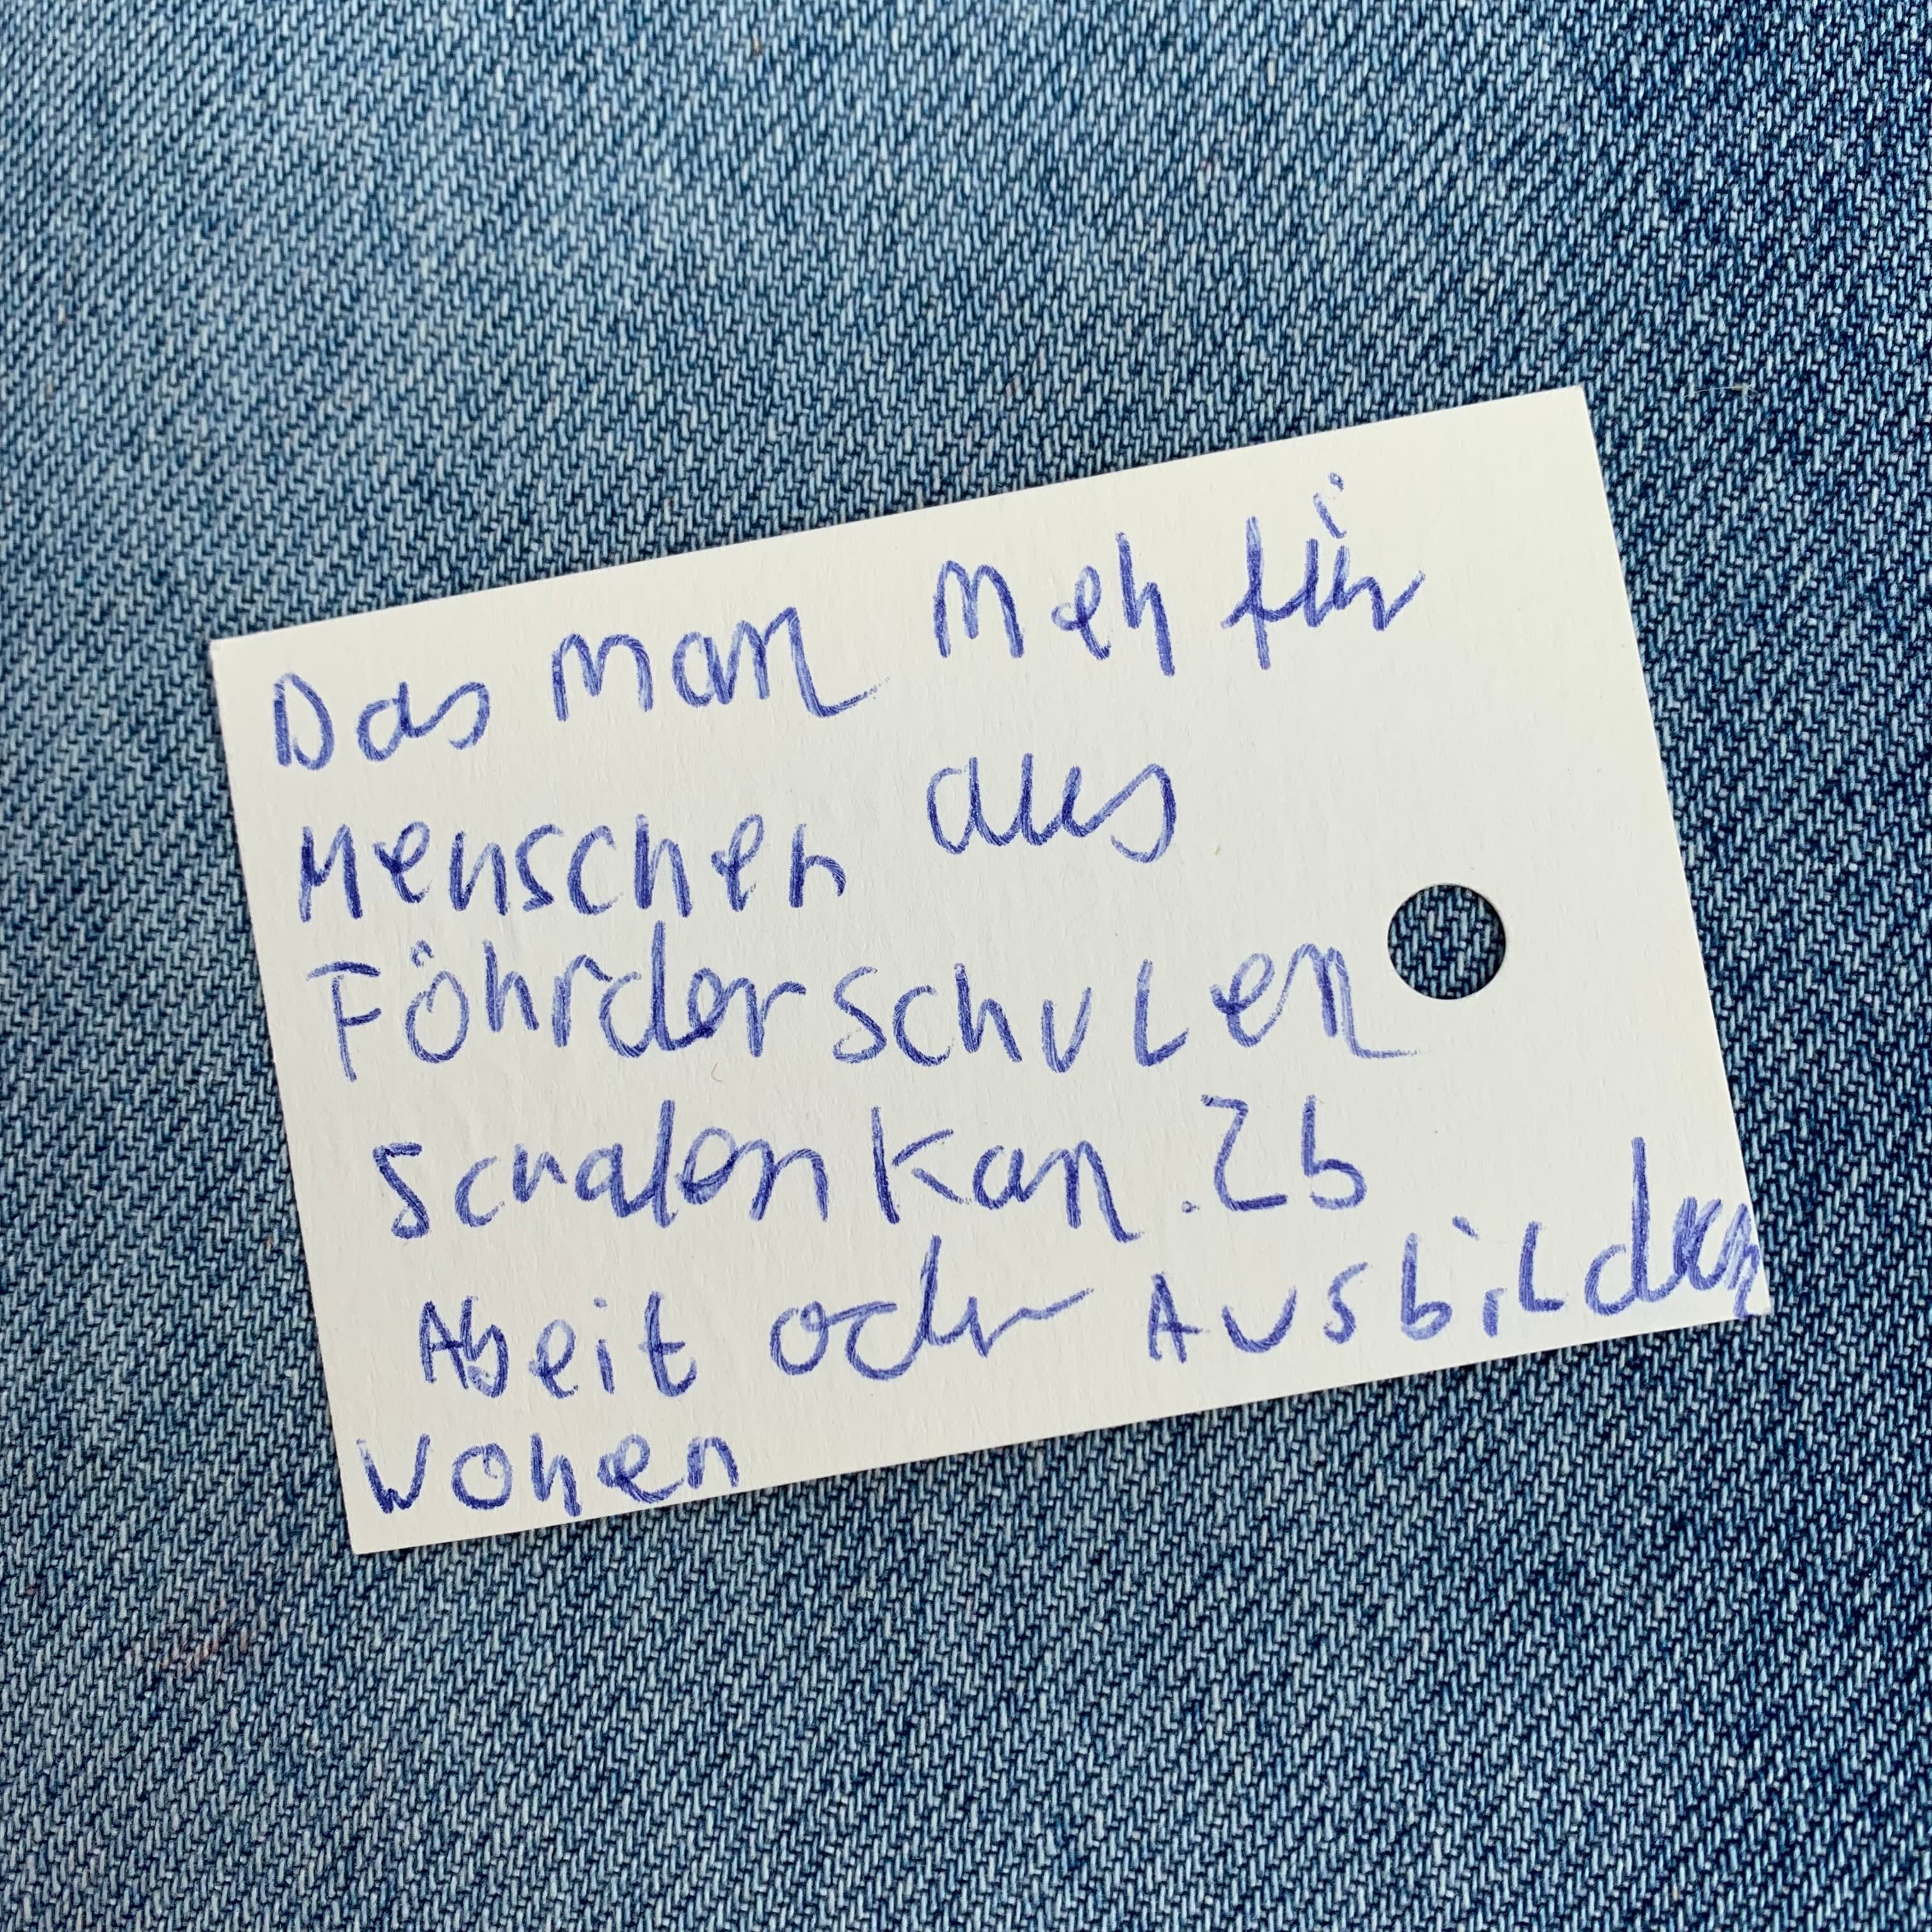 Das man Meh für
Menschen aus
Föhrderschulen
schafen kan. Zb
Abeit oder Ausbilden
Wohen